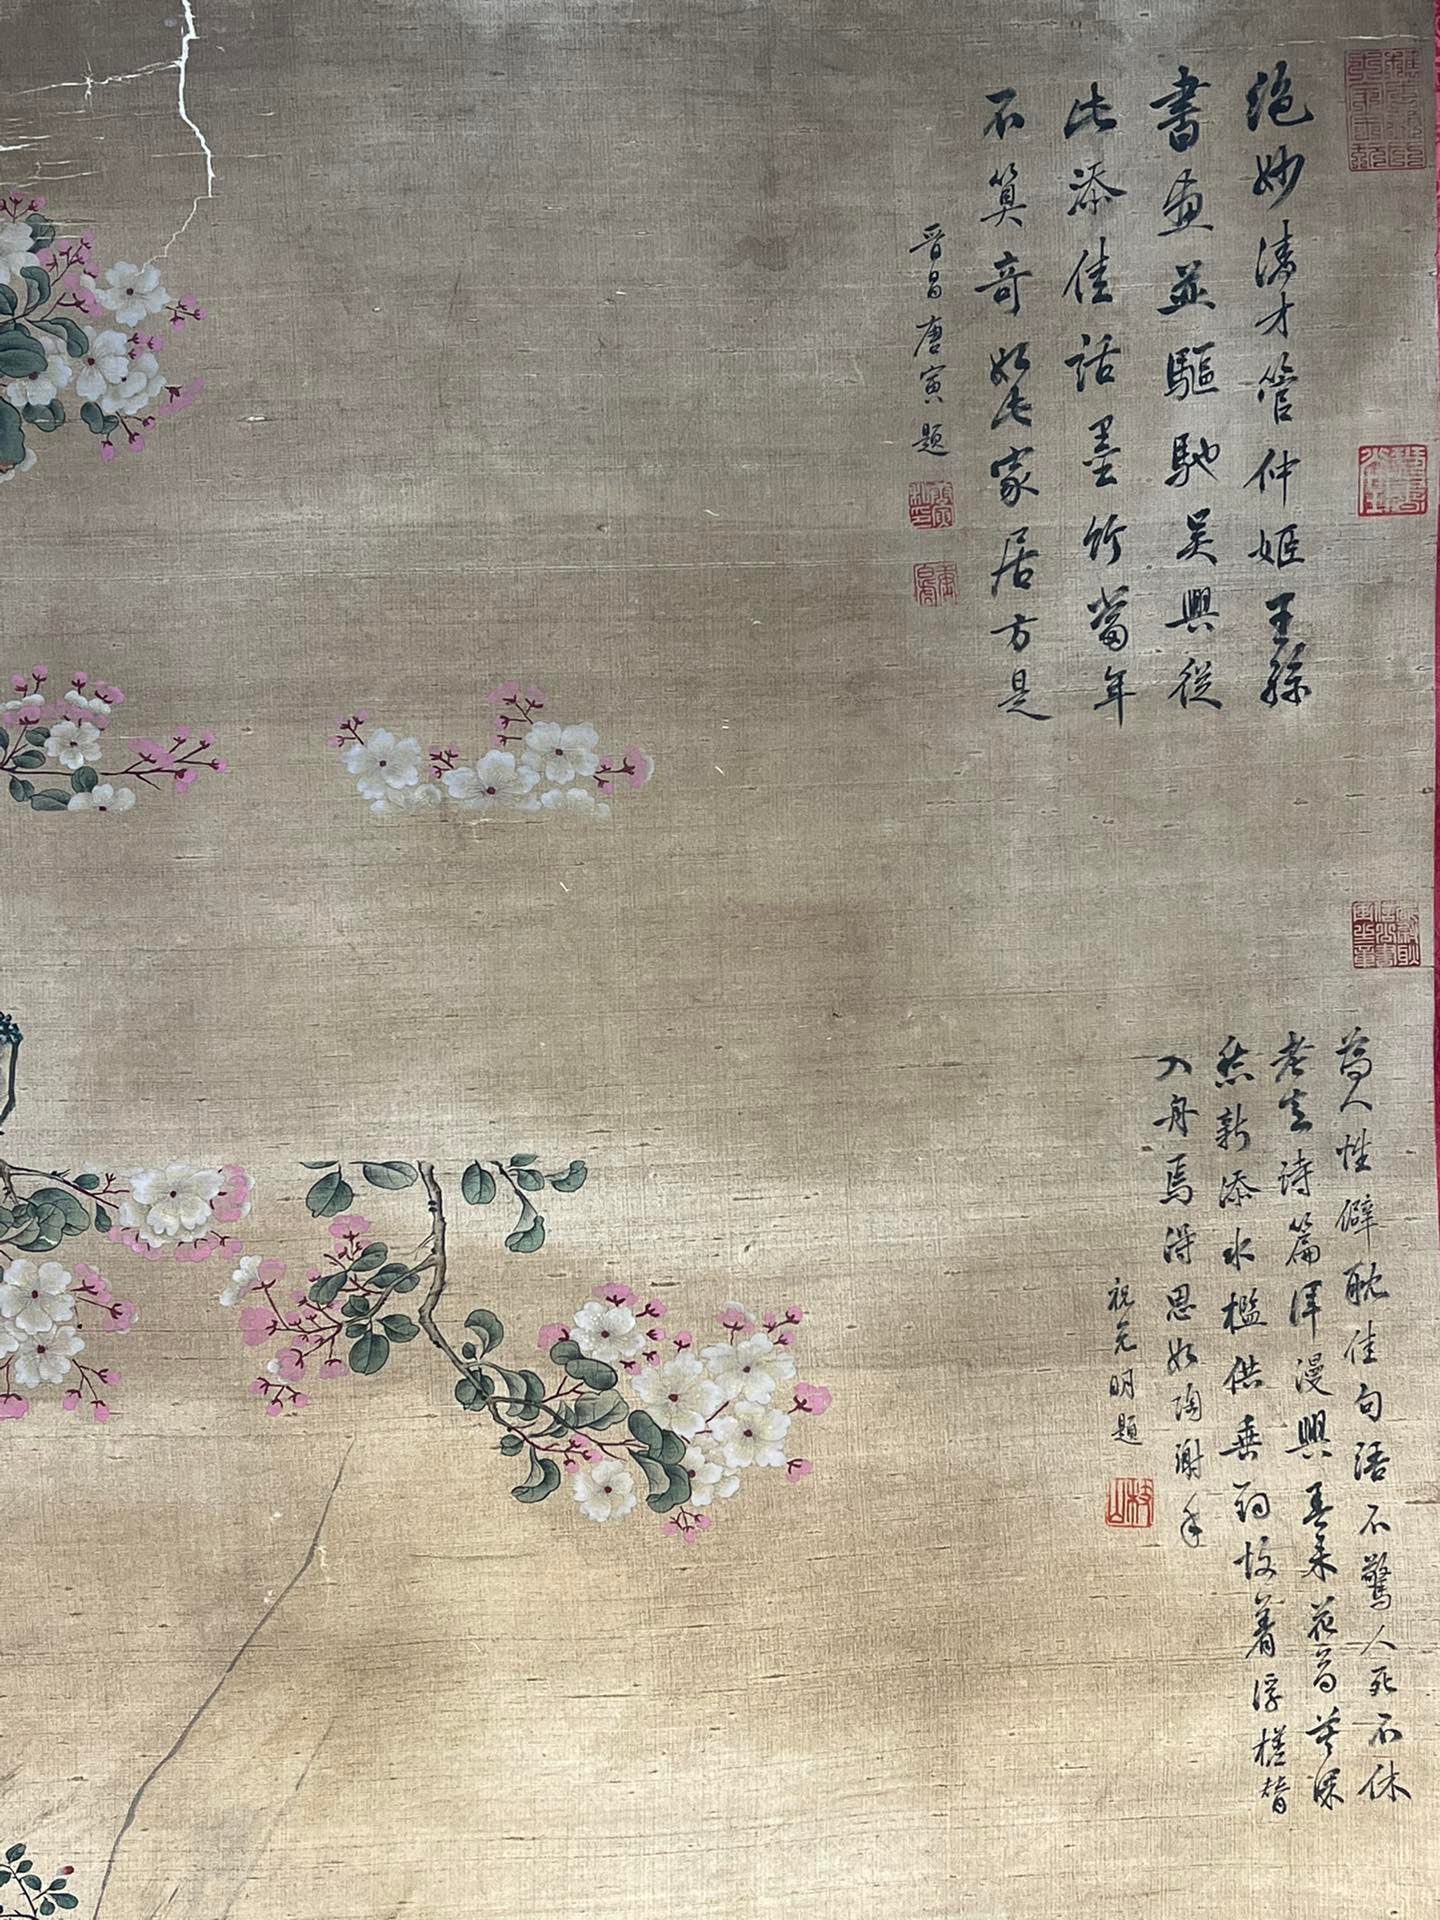 絶妙清才管仲姬王孫
書畫並驅馳吳興從
此添佳話墨竹當年
不算奇如此家居方是
晉昌唐寅題
為人性僻耽佳句語不驚人死不休
老去詩篇渾漫興春來花鳥莫深
愁新添水檻供垂釣故著浮槎替
入舟焉得思如陶謝手
祝允明題
枝山